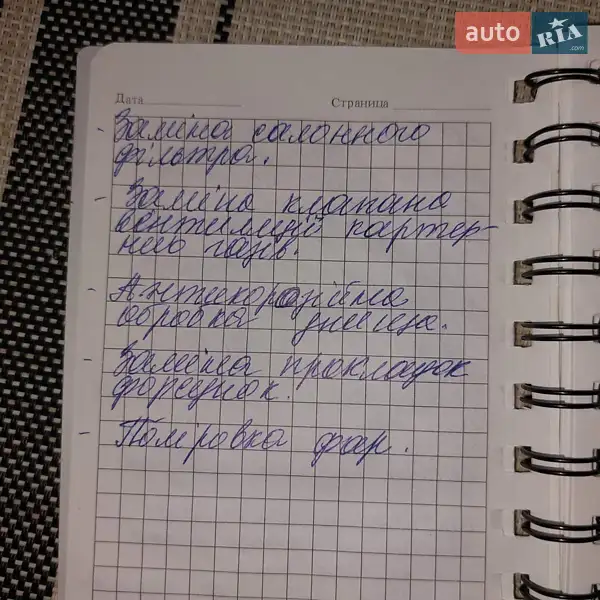 auto RIA .com
Дата Страница
- Заміна салонного
фільтра.
- Заміна клапана
вентиляції картер-
них газів.
- Антикорозійна
обробка днища.
- Заміна прокладок
форсунок.
- Поліровка фар.